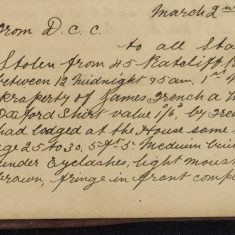 March 2nd
From D.C.C.
to all Sta
Stolen from 45 Ratcliff
between 12 Midnight & 5 am. 1st
property of James French a
Oxford Shirt value 1/6. by
had lodged at the House same
age 25 to 30. 5ft 5in Medium buil
under Eyelashes, light mous
brown, fringe in front comp